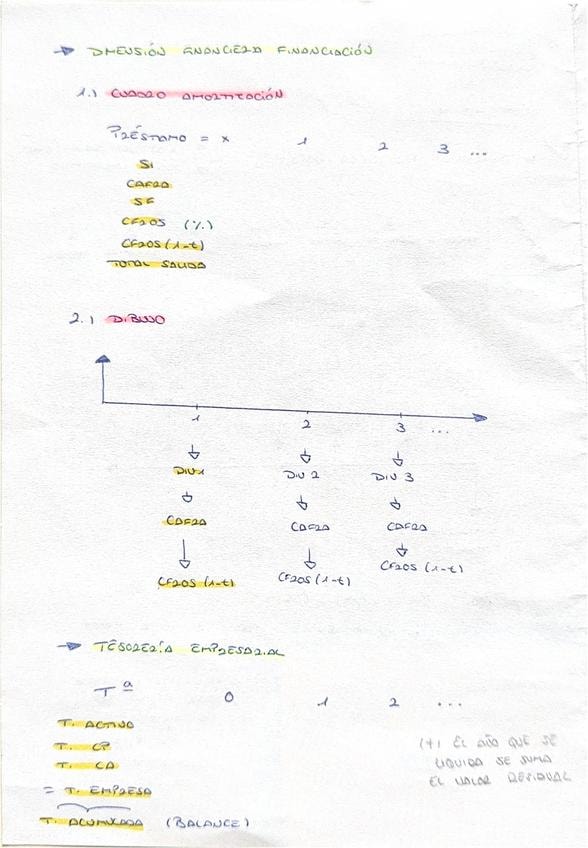 → DIMENSIÓN FINANCIERA FINANCIACIÓN
1.) CUADRO AMORTIZACIÓN
PRÉSTAMO = x 1 2 3 ...
SI
CAF20
SF
CF20S (%)
CF20S (1-t)
TOTAL SALIDA
2.) DIBUJO
1 2 3 ...
DIV 1 DIV 2 DIV 3
CAF20 CAF20 CAF20
CF20S (1-t) CF20S (1-t) CF20S (1-t)
→ TESORERÍA EMPRESARIAL
Tª 0 1 2 ...
T. ACTIVO
T. CP
T. CA
= T. EMPRESA
T. ACUMULADA (BALANCE)
(+) EL AÑO QUE SE
LIQUIDA SE SUMA
EL VALOR RESIDUAL